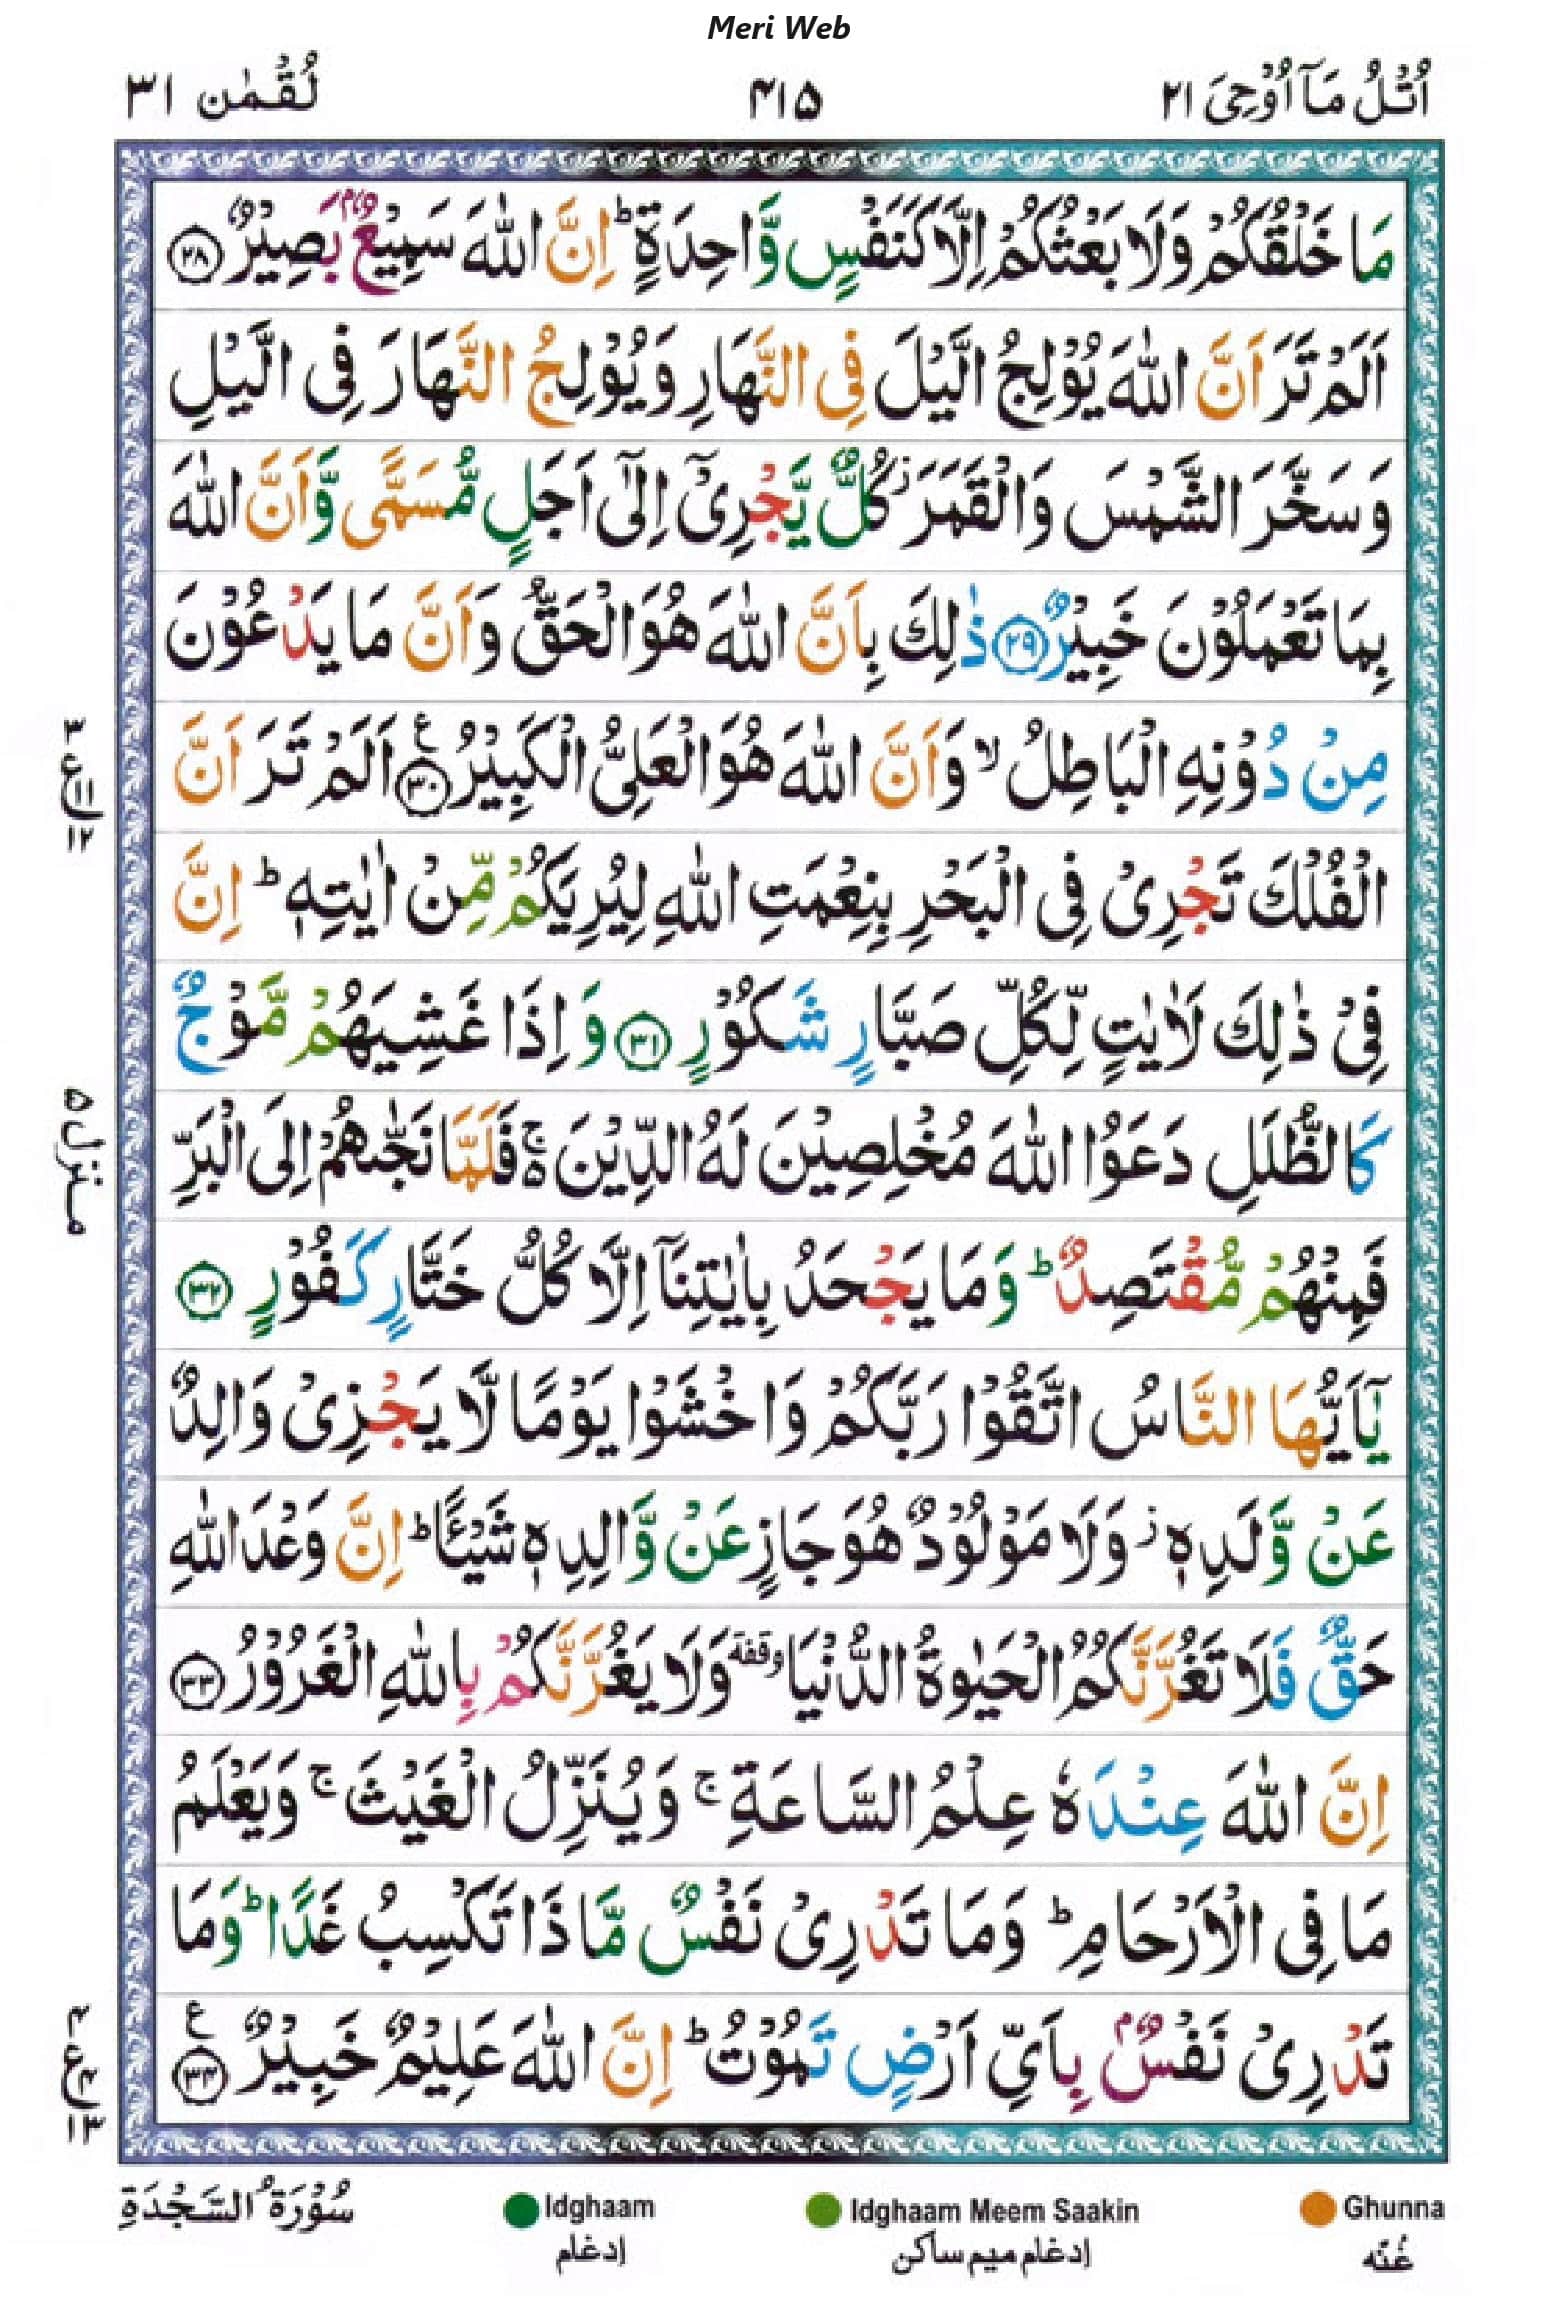 Meri Web
اُتْلُ مَآ اُوْحِیَ ۲۱
۴۱۵
لُقْمٰن ۳۱
مَا خَلْقُكُمْ وَلَا بَعْثُكُمْ اِلَّا كَنَفْسٍ وَّاحِدَةٍ ؕ اِنَّ اللّٰهَ سَمِیْعٌۢ بَصِیْرٌ ۲۸
اَلَمْ تَرَ اَنَّ اللّٰهَ یُوْلِجُ الَّیْلَ فِی النَّهَارِ وَ یُوْلِجُ النَّهَارَ فِی الَّیْلِ
وَ سَخَّرَ الشَّمْسَ وَ الْقَمَرَ ؗ كُلٌّ یَّجْرِیْۤ اِلٰۤی اَجَلٍ مُّسَمًّی وَّ اَنَّ اللّٰهَ
بِمَا تَعْمَلُوْنَ خَبِیْرٌ ۲۹ ذٰلِكَ بِاَنَّ اللّٰهَ هُوَ الْحَقُّ وَ اَنَّ مَا یَدْعُوْنَ
مِنْ دُوْنِهِ الْبَاطِلُ ۙ وَ اَنَّ اللّٰهَ هُوَ الْعَلِیُّ الْكَبِیْرُ ۳۰ ع اَلَمْ تَرَ اَنَّ
۳ ع ۱۱ ۱۲
الْفُلْكَ تَجْرِیْ فِی الْبَحْرِ بِنِعْمَتِ اللّٰهِ لِیُرِیَكُمْ مِّنْ اٰیٰتِهٖ ؕ اِنَّ
فِیْ ذٰلِكَ لَاٰیٰتٍ لِّكُلِّ صَبَّارٍ شَكُوْرٍ ۳۱ وَ اِذَا غَشِیَهُمْ مَّوْجٌ
كَالظُّلَلِ دَعَوُا اللّٰهَ مُخْلِصِیْنَ لَهُ الدِّیْنَ ۚ۬ فَلَمَّا نَجّٰىهُمْ اِلَی الْبَرِّ
منزل ۵
فَمِنْهُمْ مُّقْتَصِدٌ ؕ وَ مَا یَجْحَدُ بِاٰیٰتِنَاۤ اِلَّا كُلُّ خَتَّارٍ كَفُوْرٍ ۳۲
یٰۤاَیُّهَا النَّاسُ اتَّقُوْا رَبَّكُمْ وَ اخْشَوْا یَوْمًا لَّا یَجْزِیْ وَالِدٌ
عَنْ وَّلَدِهٖ ؗ وَ لَا مَوْلُوْدٌ هُوَ جَازٍ عَنْ وَّالِدِهٖ شَیْـًٔا ؕ اِنَّ وَعْدَ اللّٰهِ
حَقٌّ فَلَا تَغُرَّنَّكُمُ الْحَیٰوةُ الدُّنْیَا وقفة وَ لَا یَغُرَّنَّكُمْ بِاللّٰهِ الْغَرُوْرُ ۳۳
اِنَّ اللّٰهَ عِنْدَهٗ عِلْمُ السَّاعَةِ ۚ وَ یُنَزِّلُ الْغَیْثَ ۚ وَ یَعْلَمُ
مَا فِی الْاَرْحَامِ ؕ وَ مَا تَدْرِیْ نَفْسٌ مَّا ذَا تَكْسِبُ غَدًا ؕ وَ مَا
تَدْرِیْ نَفْسٌۢ بِاَیِّ اَرْضٍ تَمُوْتُ ؕ اِنَّ اللّٰهَ عَلِیْمٌ خَبِیْرٌ ۳۴ ع
۴ ع ۱۳
سُوْرَةُ السَّجْدَةِ
Idghaam
ادغام
Idghaam Meem Saakin
ادغام میم ساکن
Ghunna
غُنّه